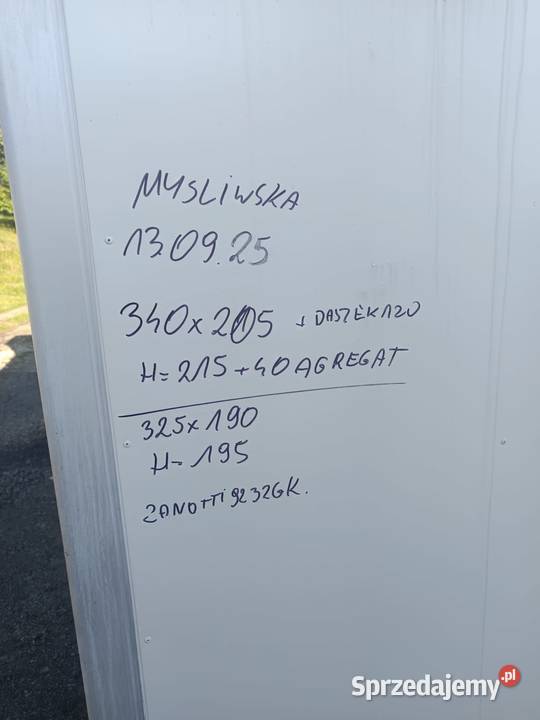 MYSLIWSKA
13.09.25
340x205 + DASZEK 120
H=215+40 AGREGAT
325x190
H-195
ZANOTTI
Sprzedajemy.pl